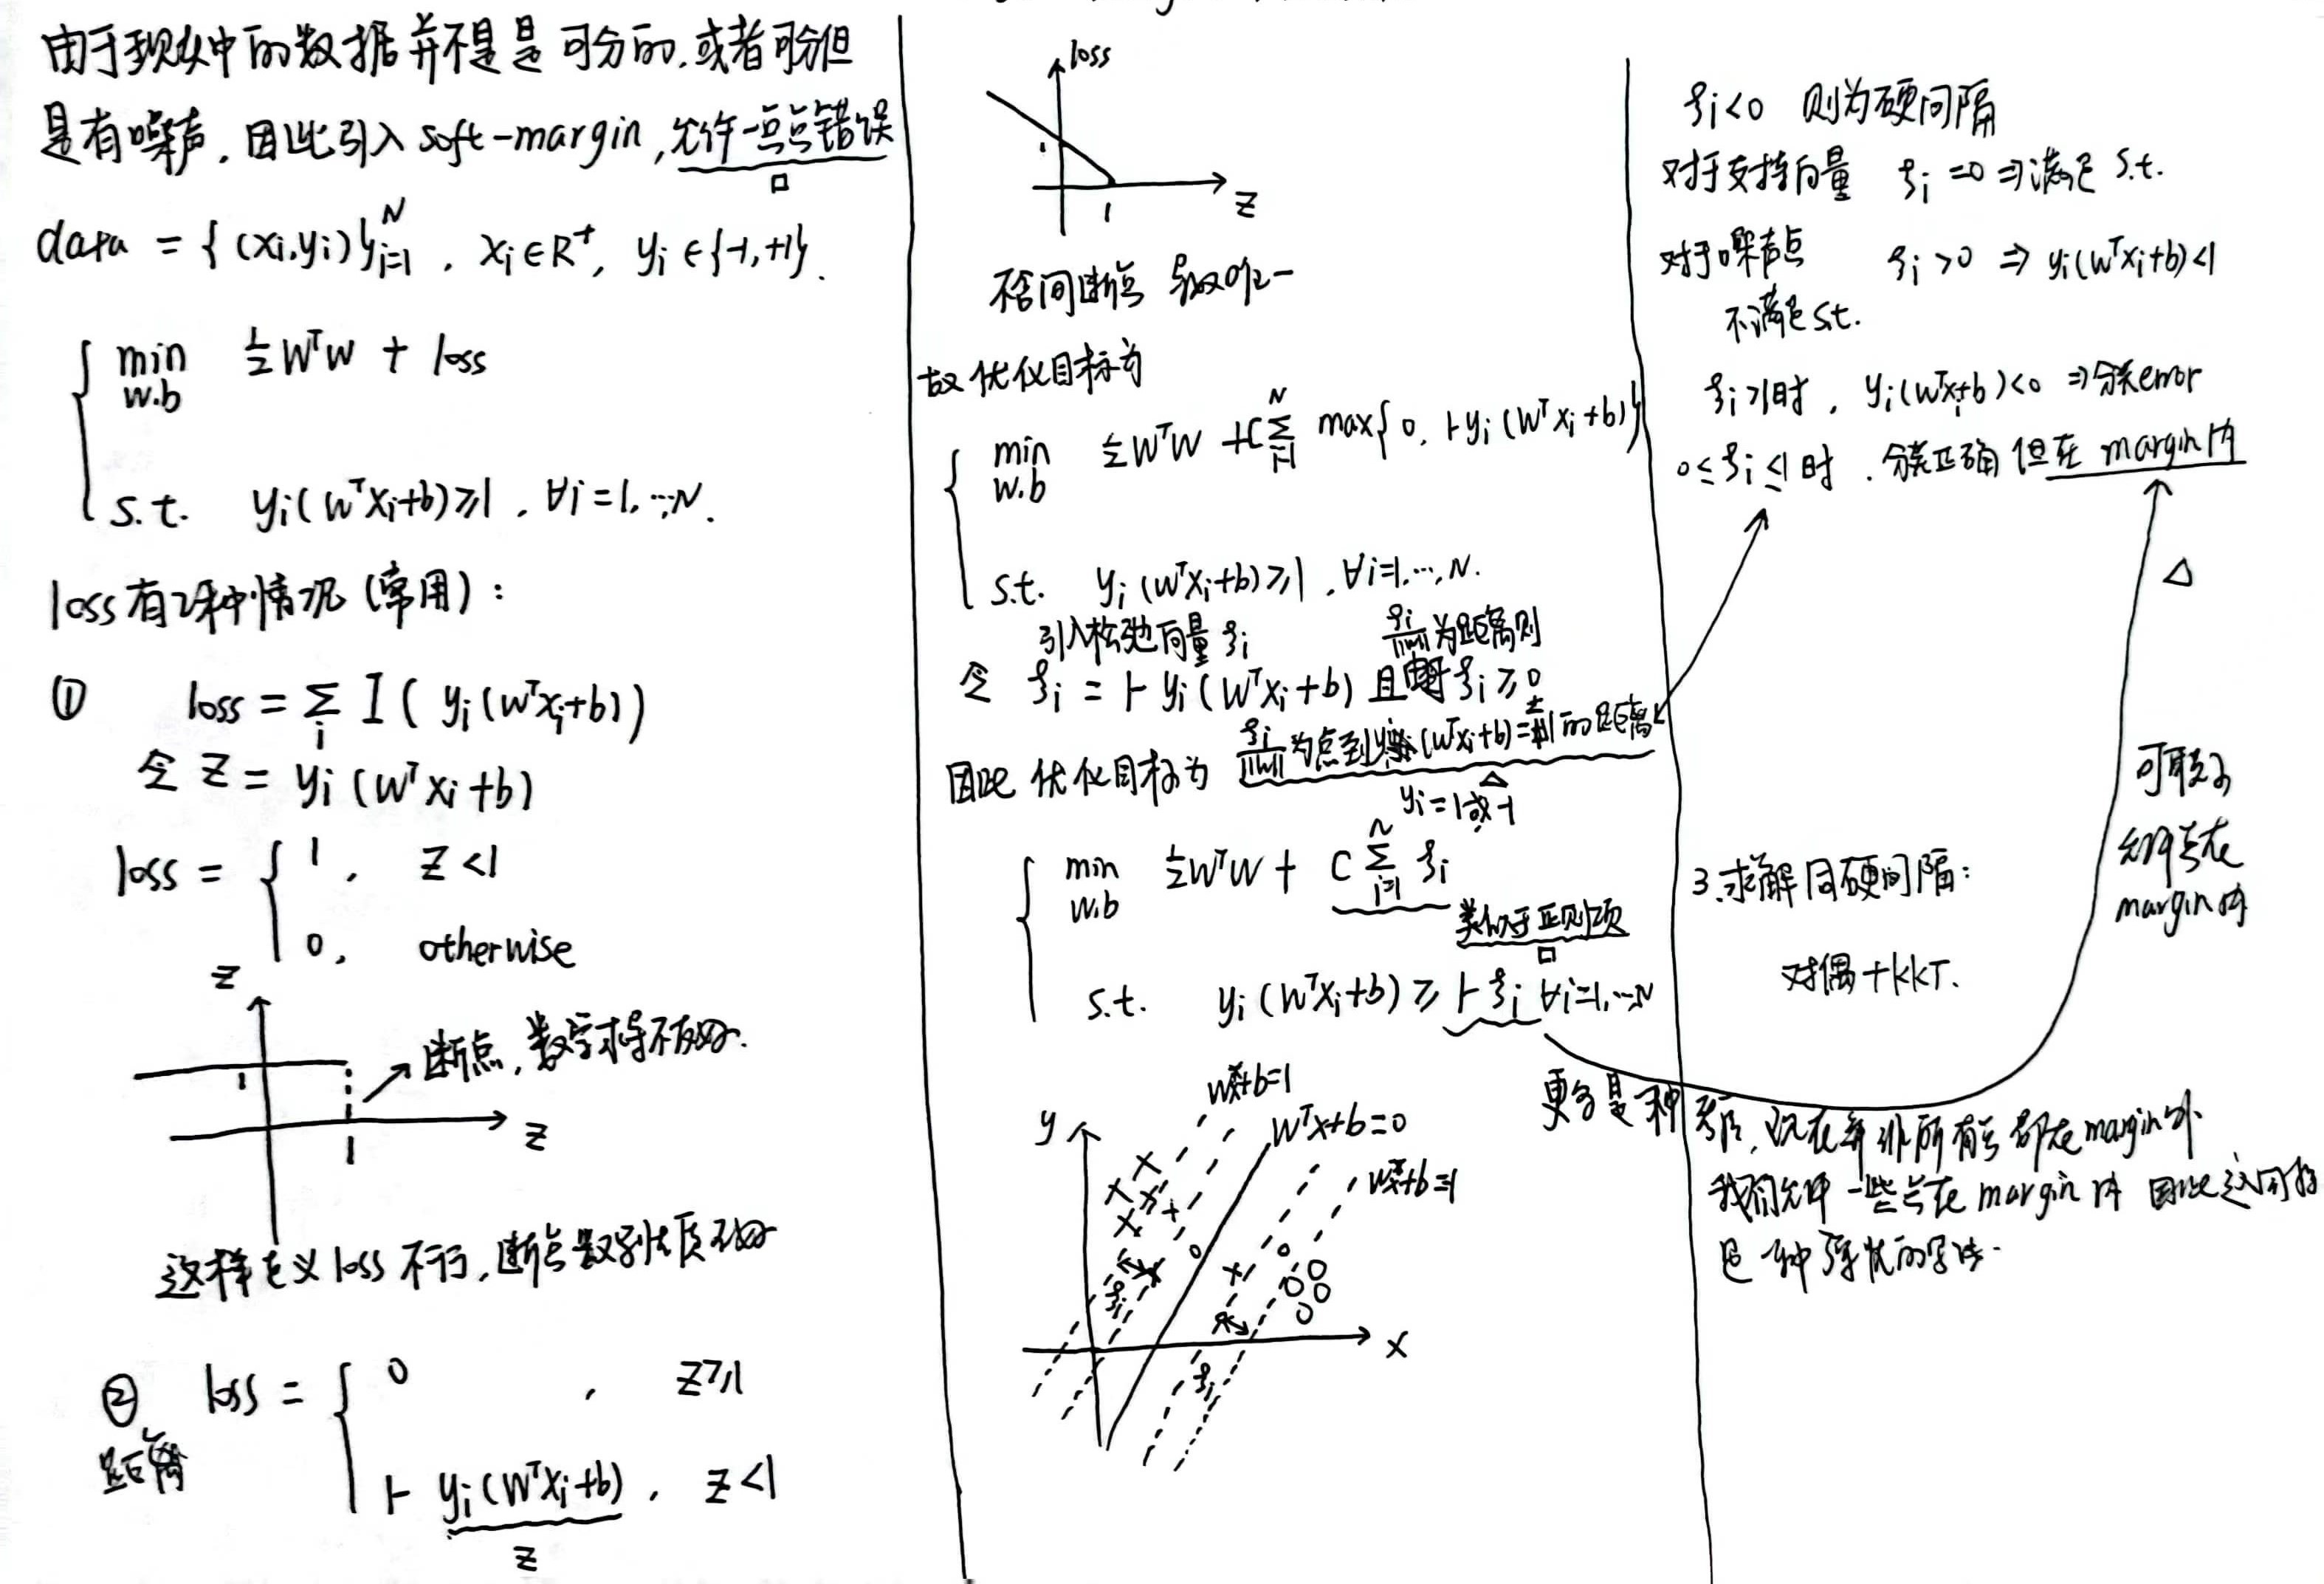 由于现实中的数据并不是是可分的,或者可分但
是有噪声,因此引入 soft-margin,允许一点点错误
data = {(xi,yi)}ᵢ₌₁ᴺ , xi∈R⁺, yi∈{-1,+1}.
min ½WᵀW + loss
w.b
s.t. yi(wᵀxi+b)≥1 , ∀i=1,…,N.
loss有2种情况(常用):
① loss = Σ I( yi(wᵀxi+b))
i
令 Z = yi(wᵀxi+b)
loss = { 1, Z<1
0, otherwise
Z
1
断点,数学求导不友好.
Z
1
这样定义 loss 不行,断点数学性质不好
② loss = { 0 , Z≥1
距离
1-yi(wᵀxi+b), Z<1
Z
loss
1
1
Z
不含间断点 导数唯一
故优化目标为
min ½WᵀW +C Σᵢ₌₁ᴺ max{0, 1-yi(wᵀxi+b)}
w.b
s.t. yi(wᵀxi+b)≥1 , ∀i=1,…,N.
引入松弛向量 ξi ξi/||w|| 为距离则
令 ξi = 1-yi(wᵀxi+b) 且 ξi≥0
因此优化目标为 ξi/||w|| 为点到 (wᵀxi+b)=±1 的距离
△
yi=1或-1
min ½WᵀW + C Σᵢ₌₁ᴺ ξi
w.b
类似于正则项
s.t. yi(wᵀxi+b) ≥ 1-ξi ∀i=1,…N
wᵀx+b=1
y
wᵀx+b=0
wᵀx+b=-1
ξi
x
ξi
ξi<0 则为硬间隔
对于支持向量 ξi=0 ⇒满足 s.t.
对于噪声点 ξi>0 ⇒ yi(wᵀxi+b)<1
不满足s.t.
ξi>1时, yi(wᵀxi+b)<0 ⇒分类error
0≤ξi≤1时, 分类正确 但在 margin内
△
可取为
允许点在
margin内
3.求解同硬间隔:
对偶+KKT.
更多是一种 ,现在并非所有点都在margin外
我们允许一些点在 margin内 因此这同样
是一种 的写法.